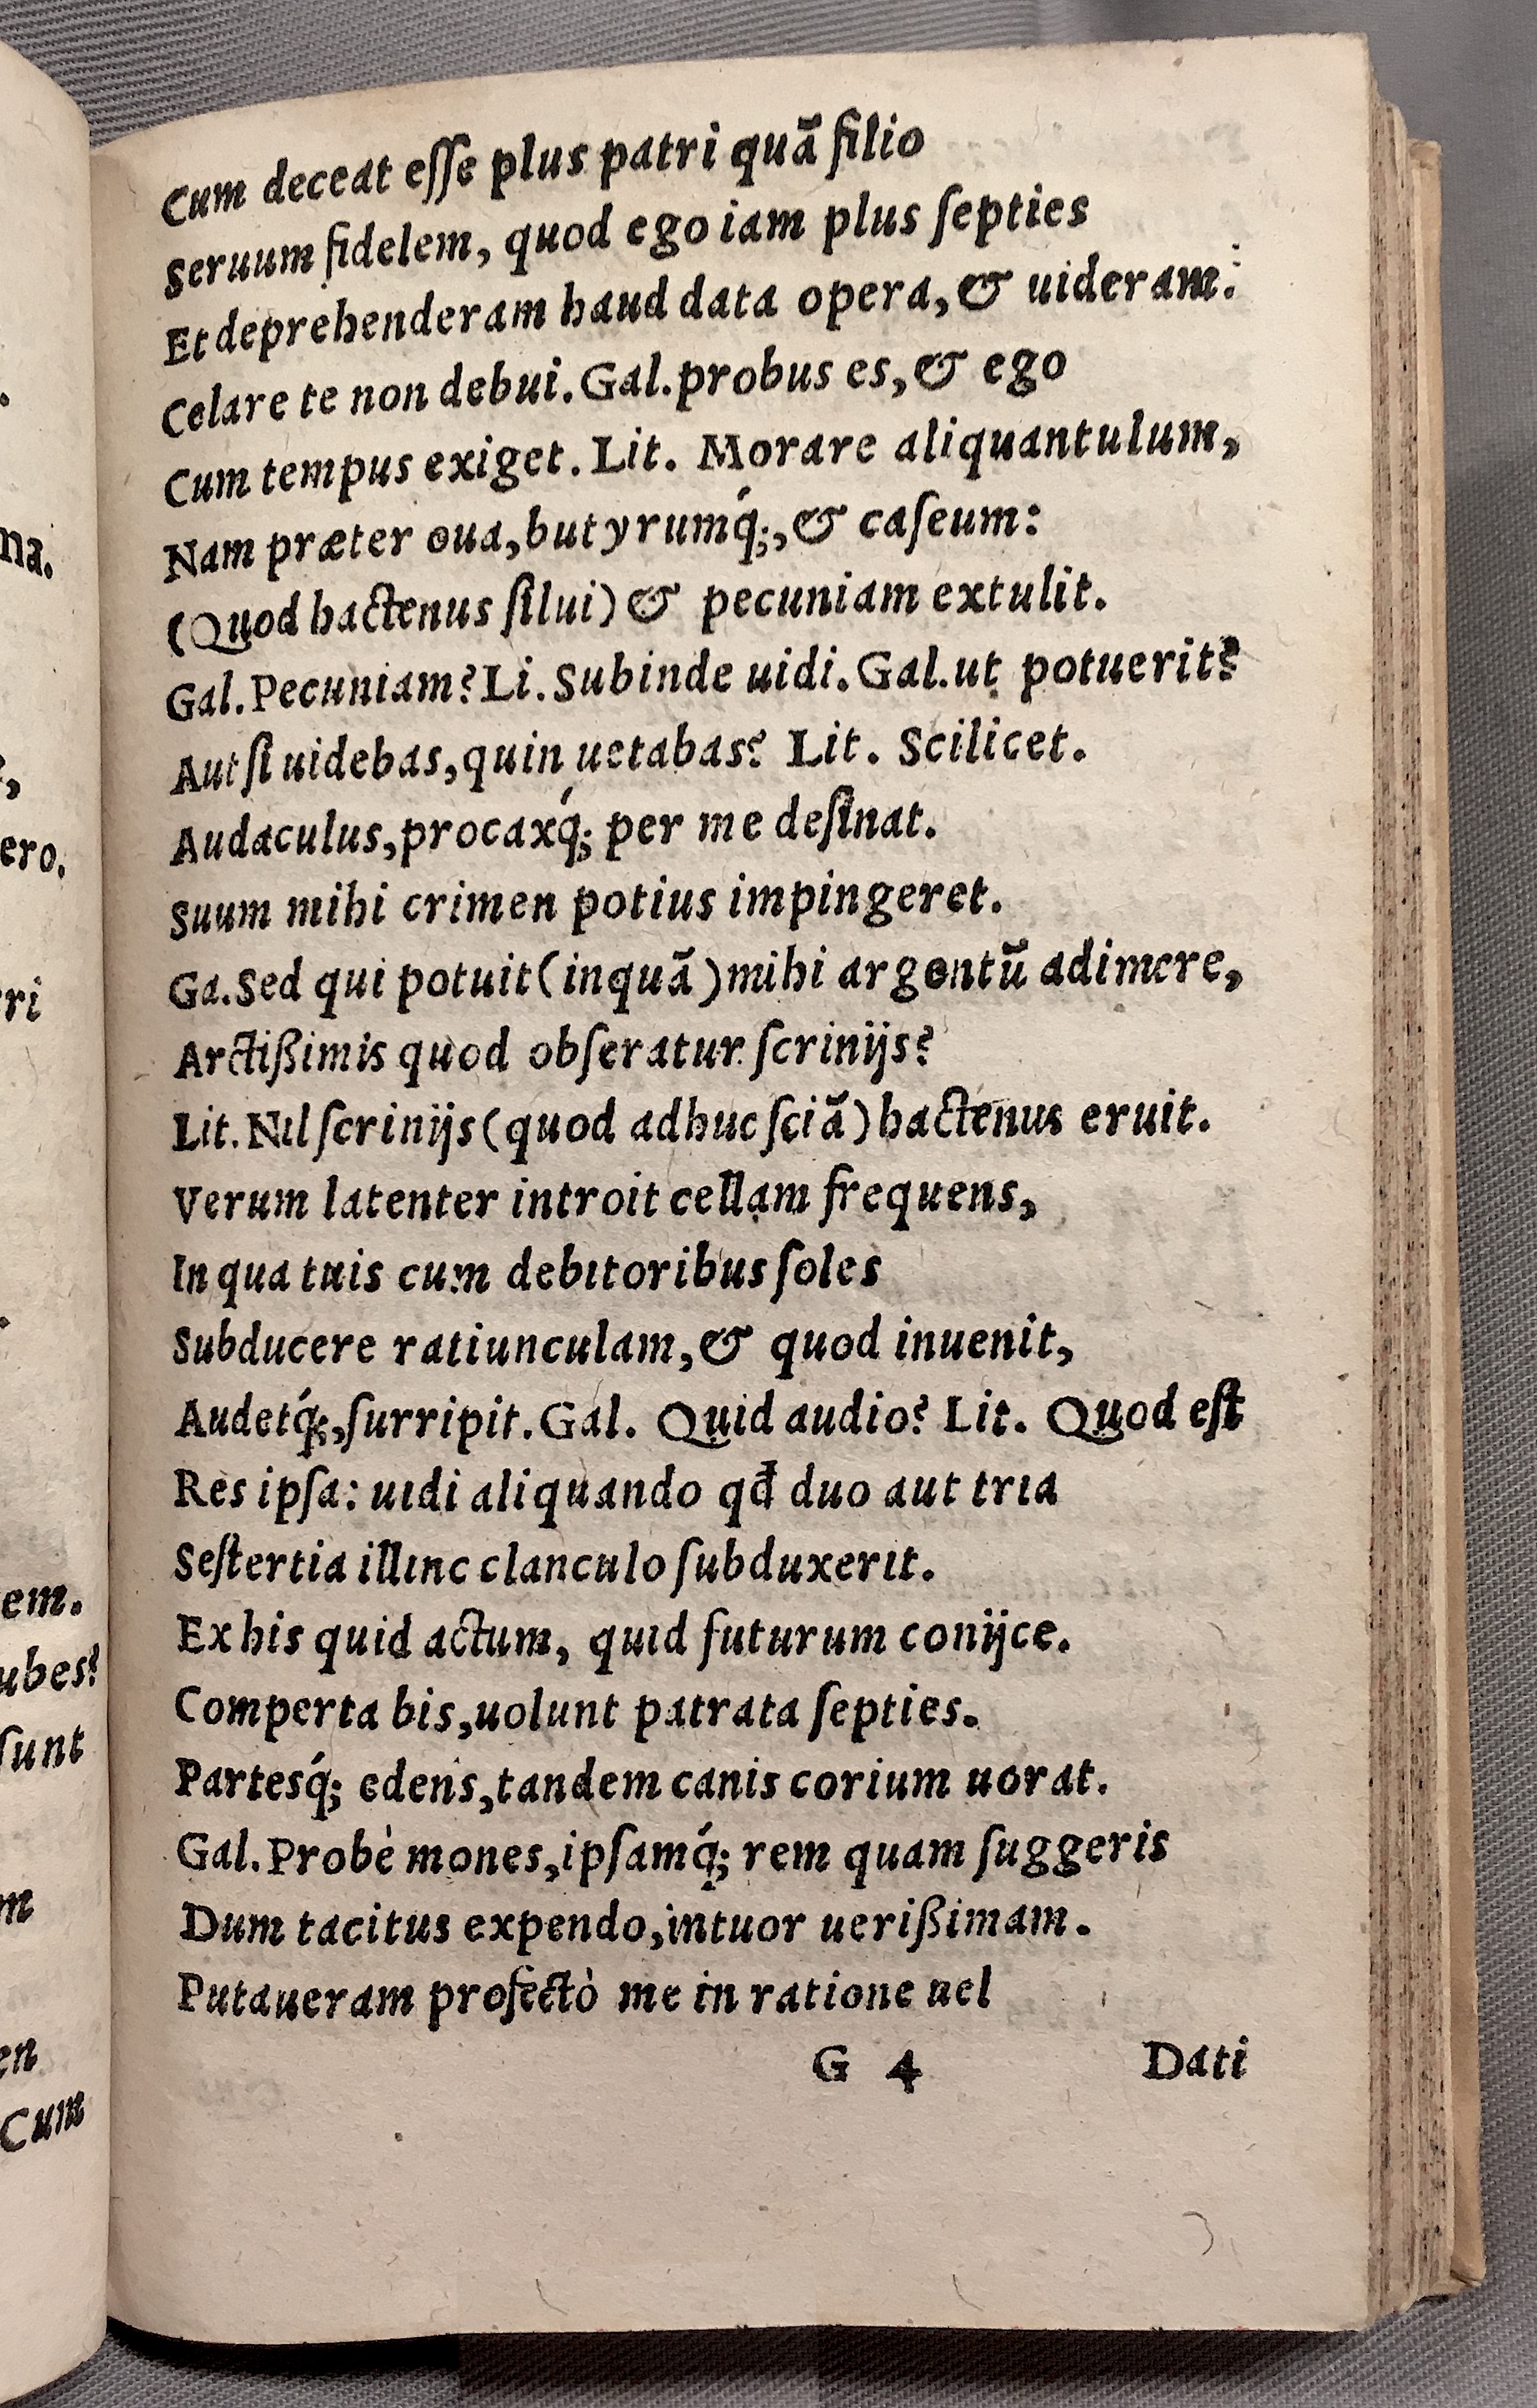 Cum deceat eſſe plus patri quā filio
Seruum fidelem, quod ego iam plus ſepties
Et deprehenderam haud data opera, & uideram:
Celare te non debui. Gal. probus es, & ego
Cum tempus exiget. Lit. Morare aliquantulum,
Nam præter oua, butyrumq́;, & caſeum:
(Quod hactenus ſilui) & pecuniam extulit.
Gal. Pecuniam? Li. Subinde uidi. Gal. ut potuerit?
Aut ſi uidebas, quin uetabas? Lit. Scilicet.
Audaculus, procaxq́; per me deſinat.
Suum mihi crimen potius impingeret.
Ga. Sed qui potuit (inquā) mihi argentū adimere,
Arctißimis quod obſeratur ſcrinijs?
Lit. Nil ſcrinijs (quod adhuc ſciā) hactenus eruit.
Verum latenter introit cellam frequens,
In qua tuis cum debitoribus ſoles
Subducere ratiunculam, & quod inuenit,
Audetq́;, ſurripit. Gal. Quid audio? Lit. Quod eſt
Res ipſa: uidi aliquando qđ duo aut tria
Seſtertia illinc clanculo ſubduxerit.
Ex his quid actum, quid futurum conijce.
Comperta bis, uolunt patrata ſepties.
Partesq́; edens, tandem canis corium uorat.
Gal. Probè mones, ipſamq́; rem quam ſuggeris
Dum tacitus expendo, intuor uerißimam.
Putaueram profectò me in ratione uel
G 4 Dati
na.
ero.
ri
em.
ubes?
ſunt
m
en
Cum